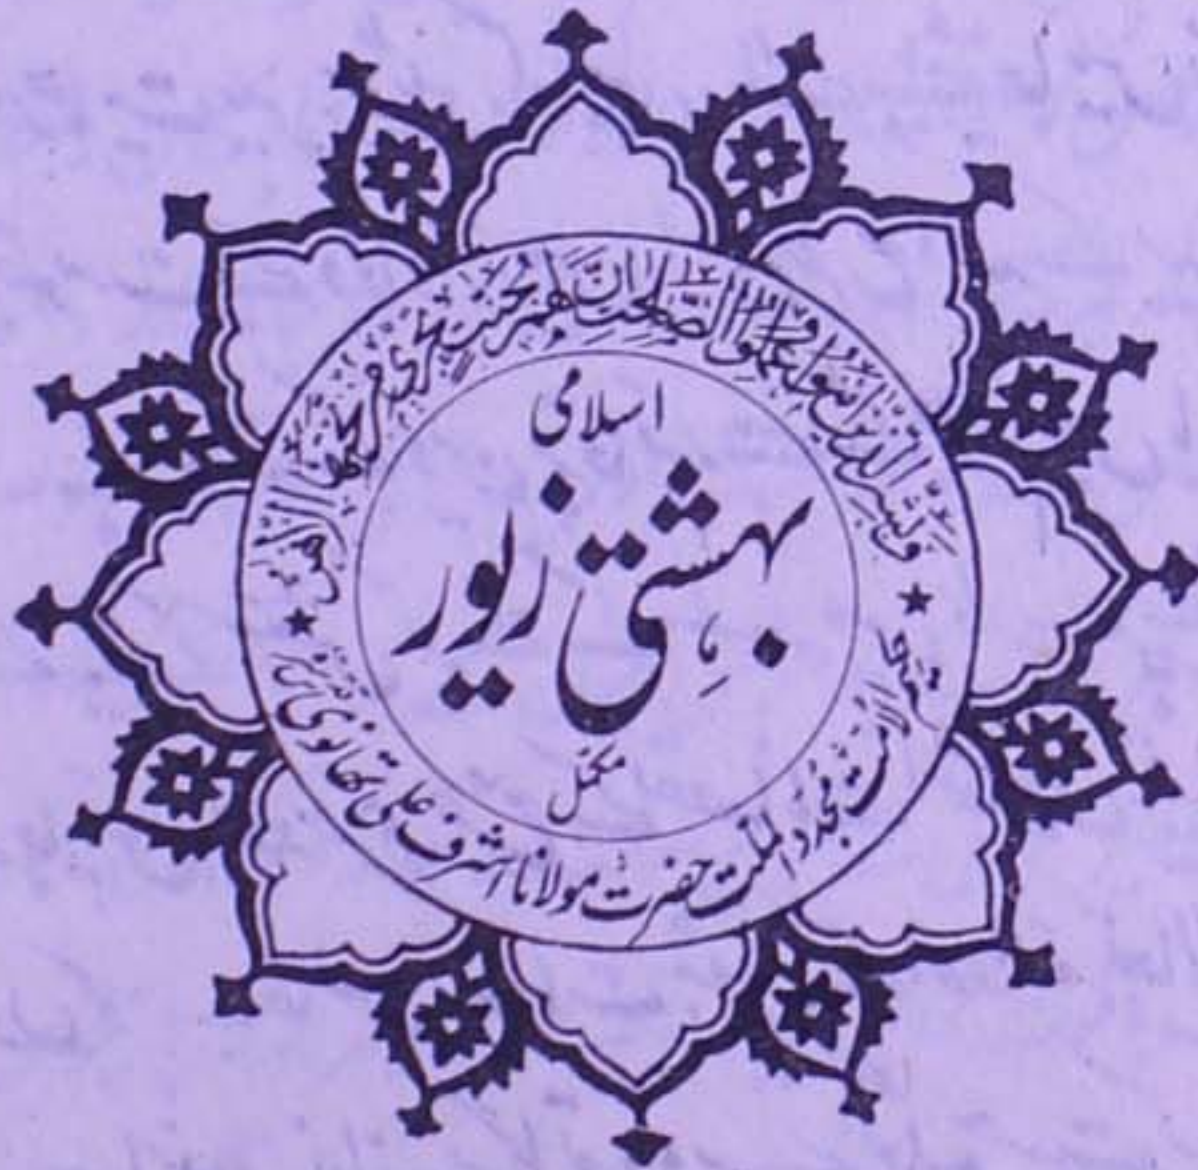 وَبَشِّرِ الَّذِينَ آمَنُوا وَعَمِلُوا الصّٰلِحٰتِ اَنَّ لَهُمْ جَنّٰتٍ تَجْرِیْ مِنْ تَحْتِهَا الْاَنْهٰرُ
اسلامی
بہشتی زیور
مکمل
حکیم الامت مجدد الملت حضرت مولانا اشرف علی تھانوی